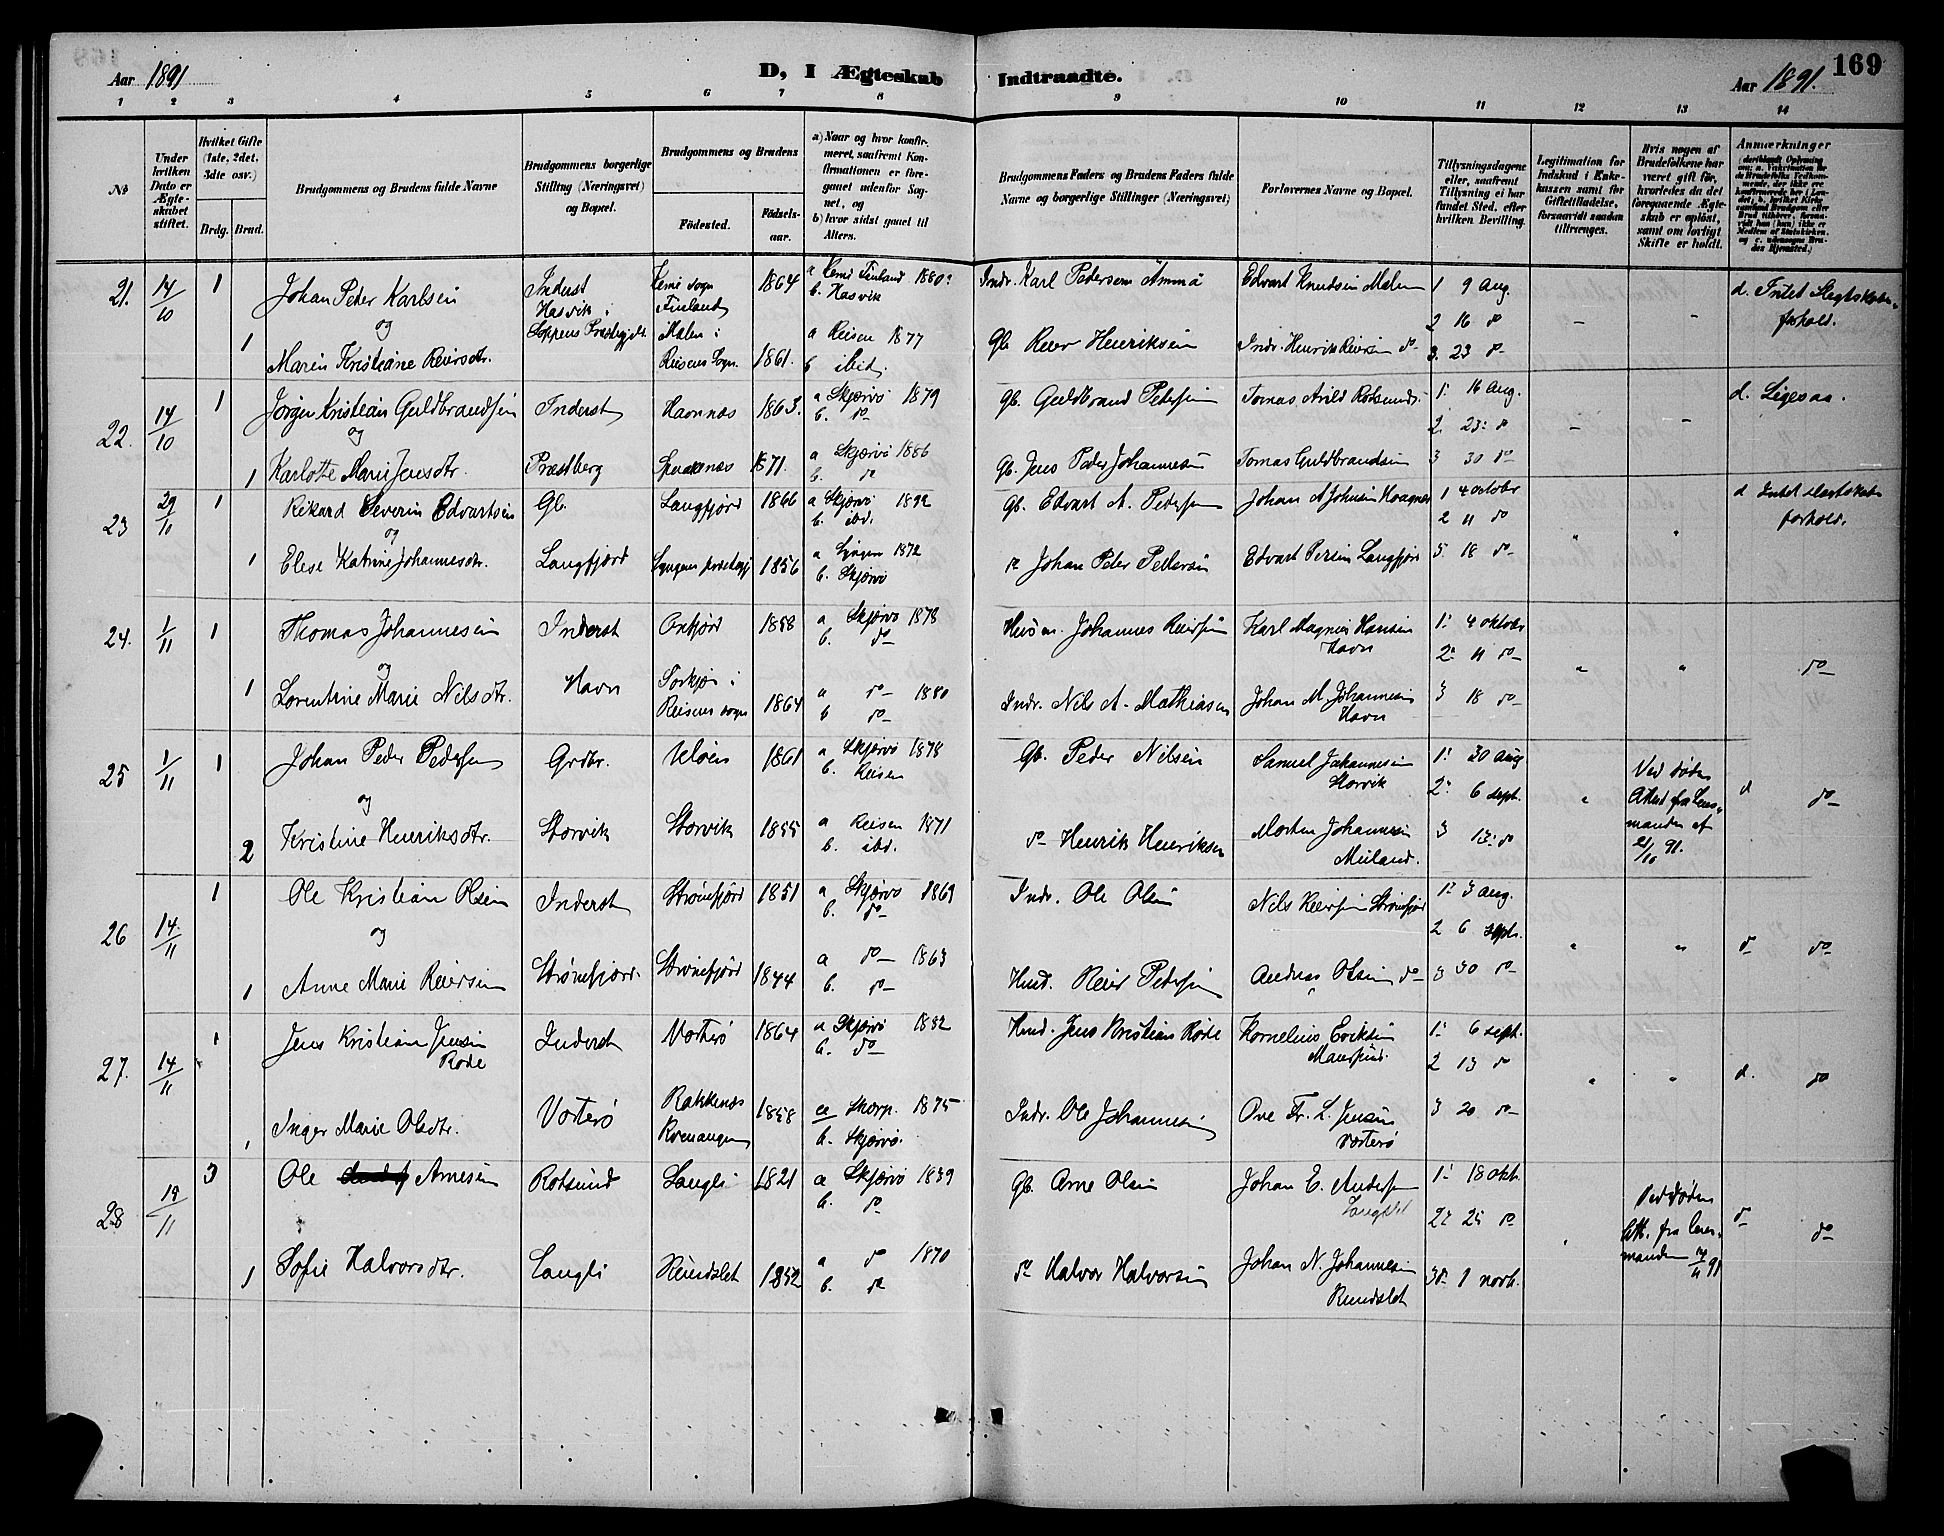 169
Aar 1891
D, I Ægteskab Indtraadte.
Aar 1891.
1 2 3 4 5 6 7 8 9 10 11 12 13 14
No
Under hvilken Dato er Ægteskabet stiftet.
Hvilket Gifte (1ste, 2det, 3die osv.)
Brdg. Brud.
Brudgommens og Brudens fulde Navne
Brudgommens borgerlige Stilling (Næringsvei) og Bopæl.
Brudgommens og Brudens
Fødested.
Fødselsaar.
a) Naar og hvor konfirmeret, saafremt Konfirmationen er foregaaet udenfor Sognet, og
b) hvor sidst gaaet til Alters.
Brudgommens Faders og Brudens Faders fulde Navne og borgerlige Stillinger (Næringsvei)
Forlovernes Navne og Bopæl.
Tillysningsdagene eller, saafremt Tillysning ei har fundet Sted, efter hvilken Bevilling.
Legitimation for Indskud i Enkekassen samt for Giftetilladelse, forsaavidt saadan tiltrænges.
Hvis nogen af Brudefolkene har været gift før, hvorledes da det foregaaende Ægteskab er opløst, samt om lovligt Skifte er holdt.
Anmærkninger
21. 14/10 1 Johan Peder Karlsen Inderst Hasvik i Loppens Præstegjdt. Kemi sogn Finland 1864 a Kemi Finland 1880 b. Hasvik Indr. Karl Pedersen Ämmä Edvart Knudsen Malen 1 9 Aug. d. Intet Slegtskabsforhold.
og 2 16 do
1 Maren Kristiane Reiersdtr. Malen i Reisens Sogn. 1861. a Reisen 1877 b ibid. Gb. Reier Henriksen Indr. Henrik Reiersen do 3. 23 do
22. 14/10 1 Jørgen Kristian Guldbrandsen Inderst Havnnæs 1863. a Skjærvø 1879 b. do Gb. Guldbrand Pedersen Tomas Arild Rotsund. 1. 16 Aug. d. Ligesaa.
og 2. 23 do
1 Karlotte Marie Jensdtr. Præstberg Spaaknæs 1871. a Skjærvø 1886 b. do Gb. Jens Peder Johannesen Tomas Guldbrandsen 3 30 do
23 29/11 1 Rikard Severin Edvartsen Gb. Langfjord 1866 a Skjærvø 1892 b. ibd. Gb. Edvart A. Pedersen Johan A Johnsen 1 4 october d Intet slegtskabsforhold.
og 2 11 do
1 Elese Katrine Johannesdtr. Langfjord 1856 a Lyngen 1872 b. Skjærvø do Johan Peter Pettersen Edvart Persen Langfjord 3. 18 do
24. 1/11 1 Thomas Johannesen Inderst 1858 a Skjærvø 1878 b. do Husm. Johannes Reiersen Karl Magnus Hansen Havn 1. 4 oktobr
og 2. 11 do do
1 Lorentine Marie Nilsdtr. Havn i Reisens sogn 1864 a do 1880 b do Indr. Nils A. Mathiasen Johan M. Johannesen Havn 3 18 do
25 1/11 1 Johan Peder Pedersen Grdbr. Uløen 1861 a Skjærvø 1878 b. Reisen Gb. Peder Nilsen Samuel Johannesen Storvik 1. 30 aug
og 2. 6 sept. Ved døden Attest fra Lensmanden af 21/10 91. d do
2 Kristine Henriksdtr. Storvik Storvik 1855 a Reisen 1871 b. ibd. do Henrik Henriksen Morten Johannesen Meiland. 3 13 do
26 14/11 1 Ole Kristian Olsen Inderst Strømfjord 1851 a Skjærvø 1869 b. do Indr. Ole Olsen Nils Reiersen Strømfjord 1. 3 aug.
og 2 6 sept. d do
1 Anne Marie Reiersen Strømfjord. Strømfjord 1844 a do 1863 b. do Husd. Reier Pedersen Andreas Olsen do 3 30 do
27. 14/11 1 Jens Kristian Jensen Rode Inderst Vorterø 1864 a Skjærvø 1882 b. do Husd. Jens Kristian Rode Kornelius Eriksen 1. 6 sept.
2 13 do d. do
1 Inger Marie Olsdtr. Vorterø Rakkenæs Kvenangen 1858 a 1875 b. Skjærvø. Indr. Ole Johannesen Ove Fr. L. Jensen Vorterø 3 20 do
28 19/11 3 Ole Arnesen Rotsund Langli 1821 a Skjærvø 1839 b. do Gb. Arne Olsen Johan E. Andersen Langslet 1. 18 okt.
2. 25 do Ved døden Att. fra Lensmanden 91 d do
1 Sofie Halvorsdtr. Langli Reindslet 1852 a do 1870 b. do do Halvor Halvorsen Johan N. Johannesen Reindslet 3. 1 novb.